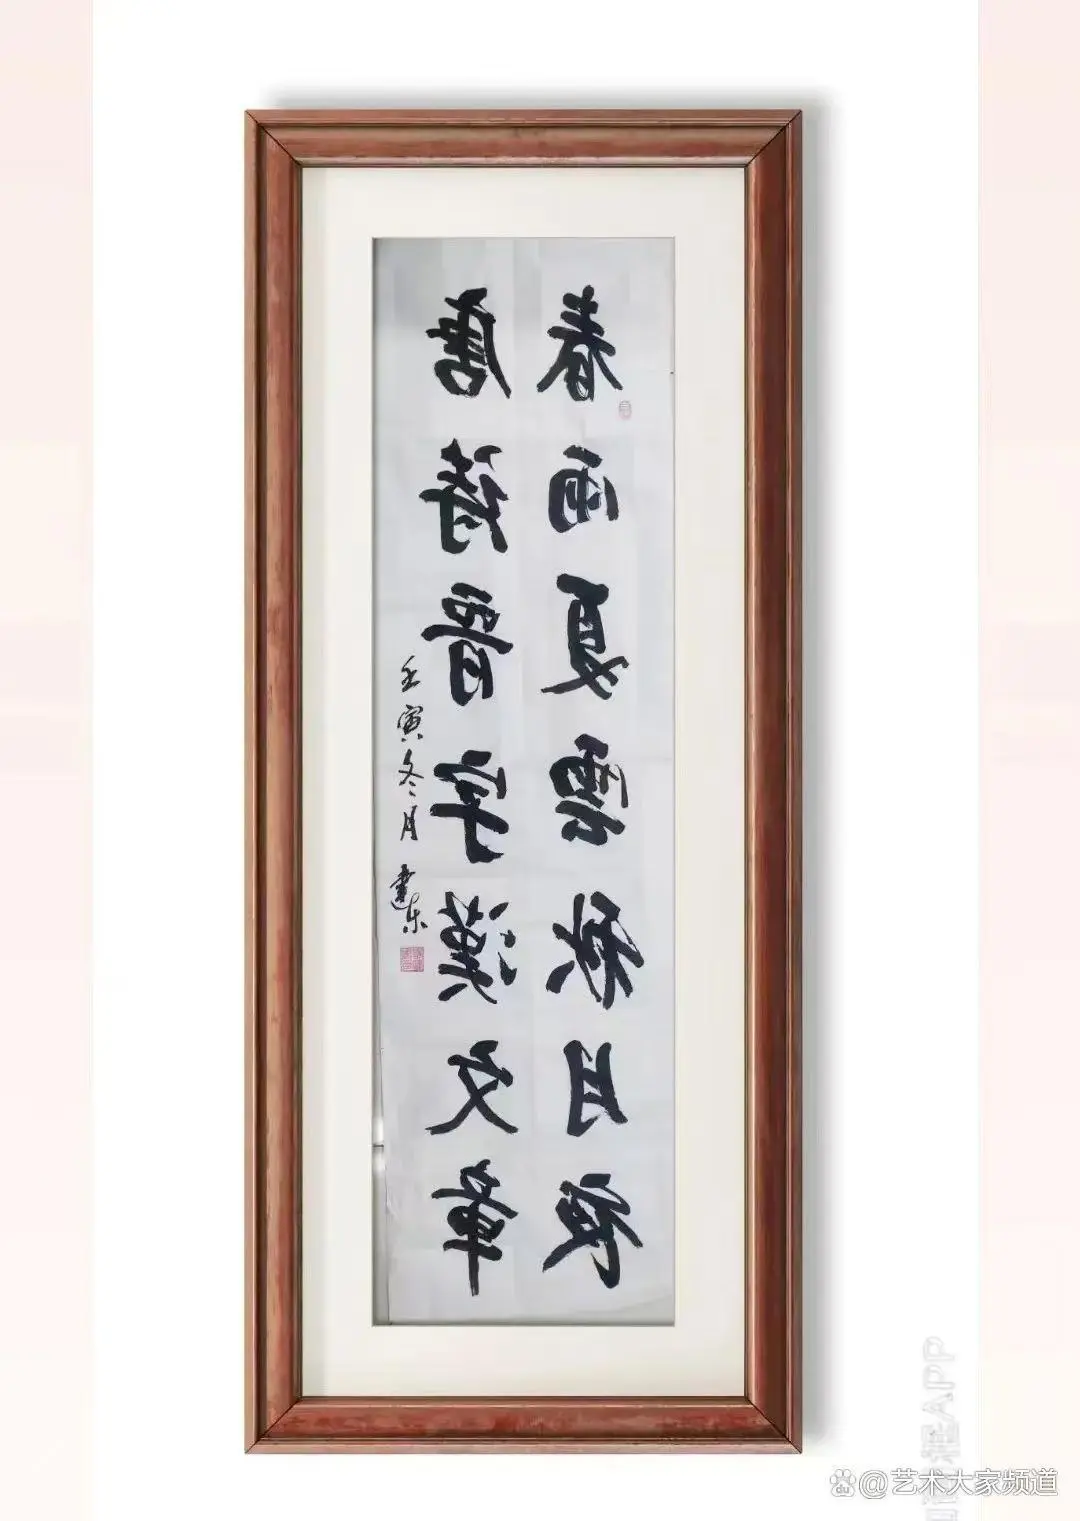 春雨夏雲秋月夜
唐诗晋字漢文章
壬寅冬月 建东
@艺术大家频道
APP